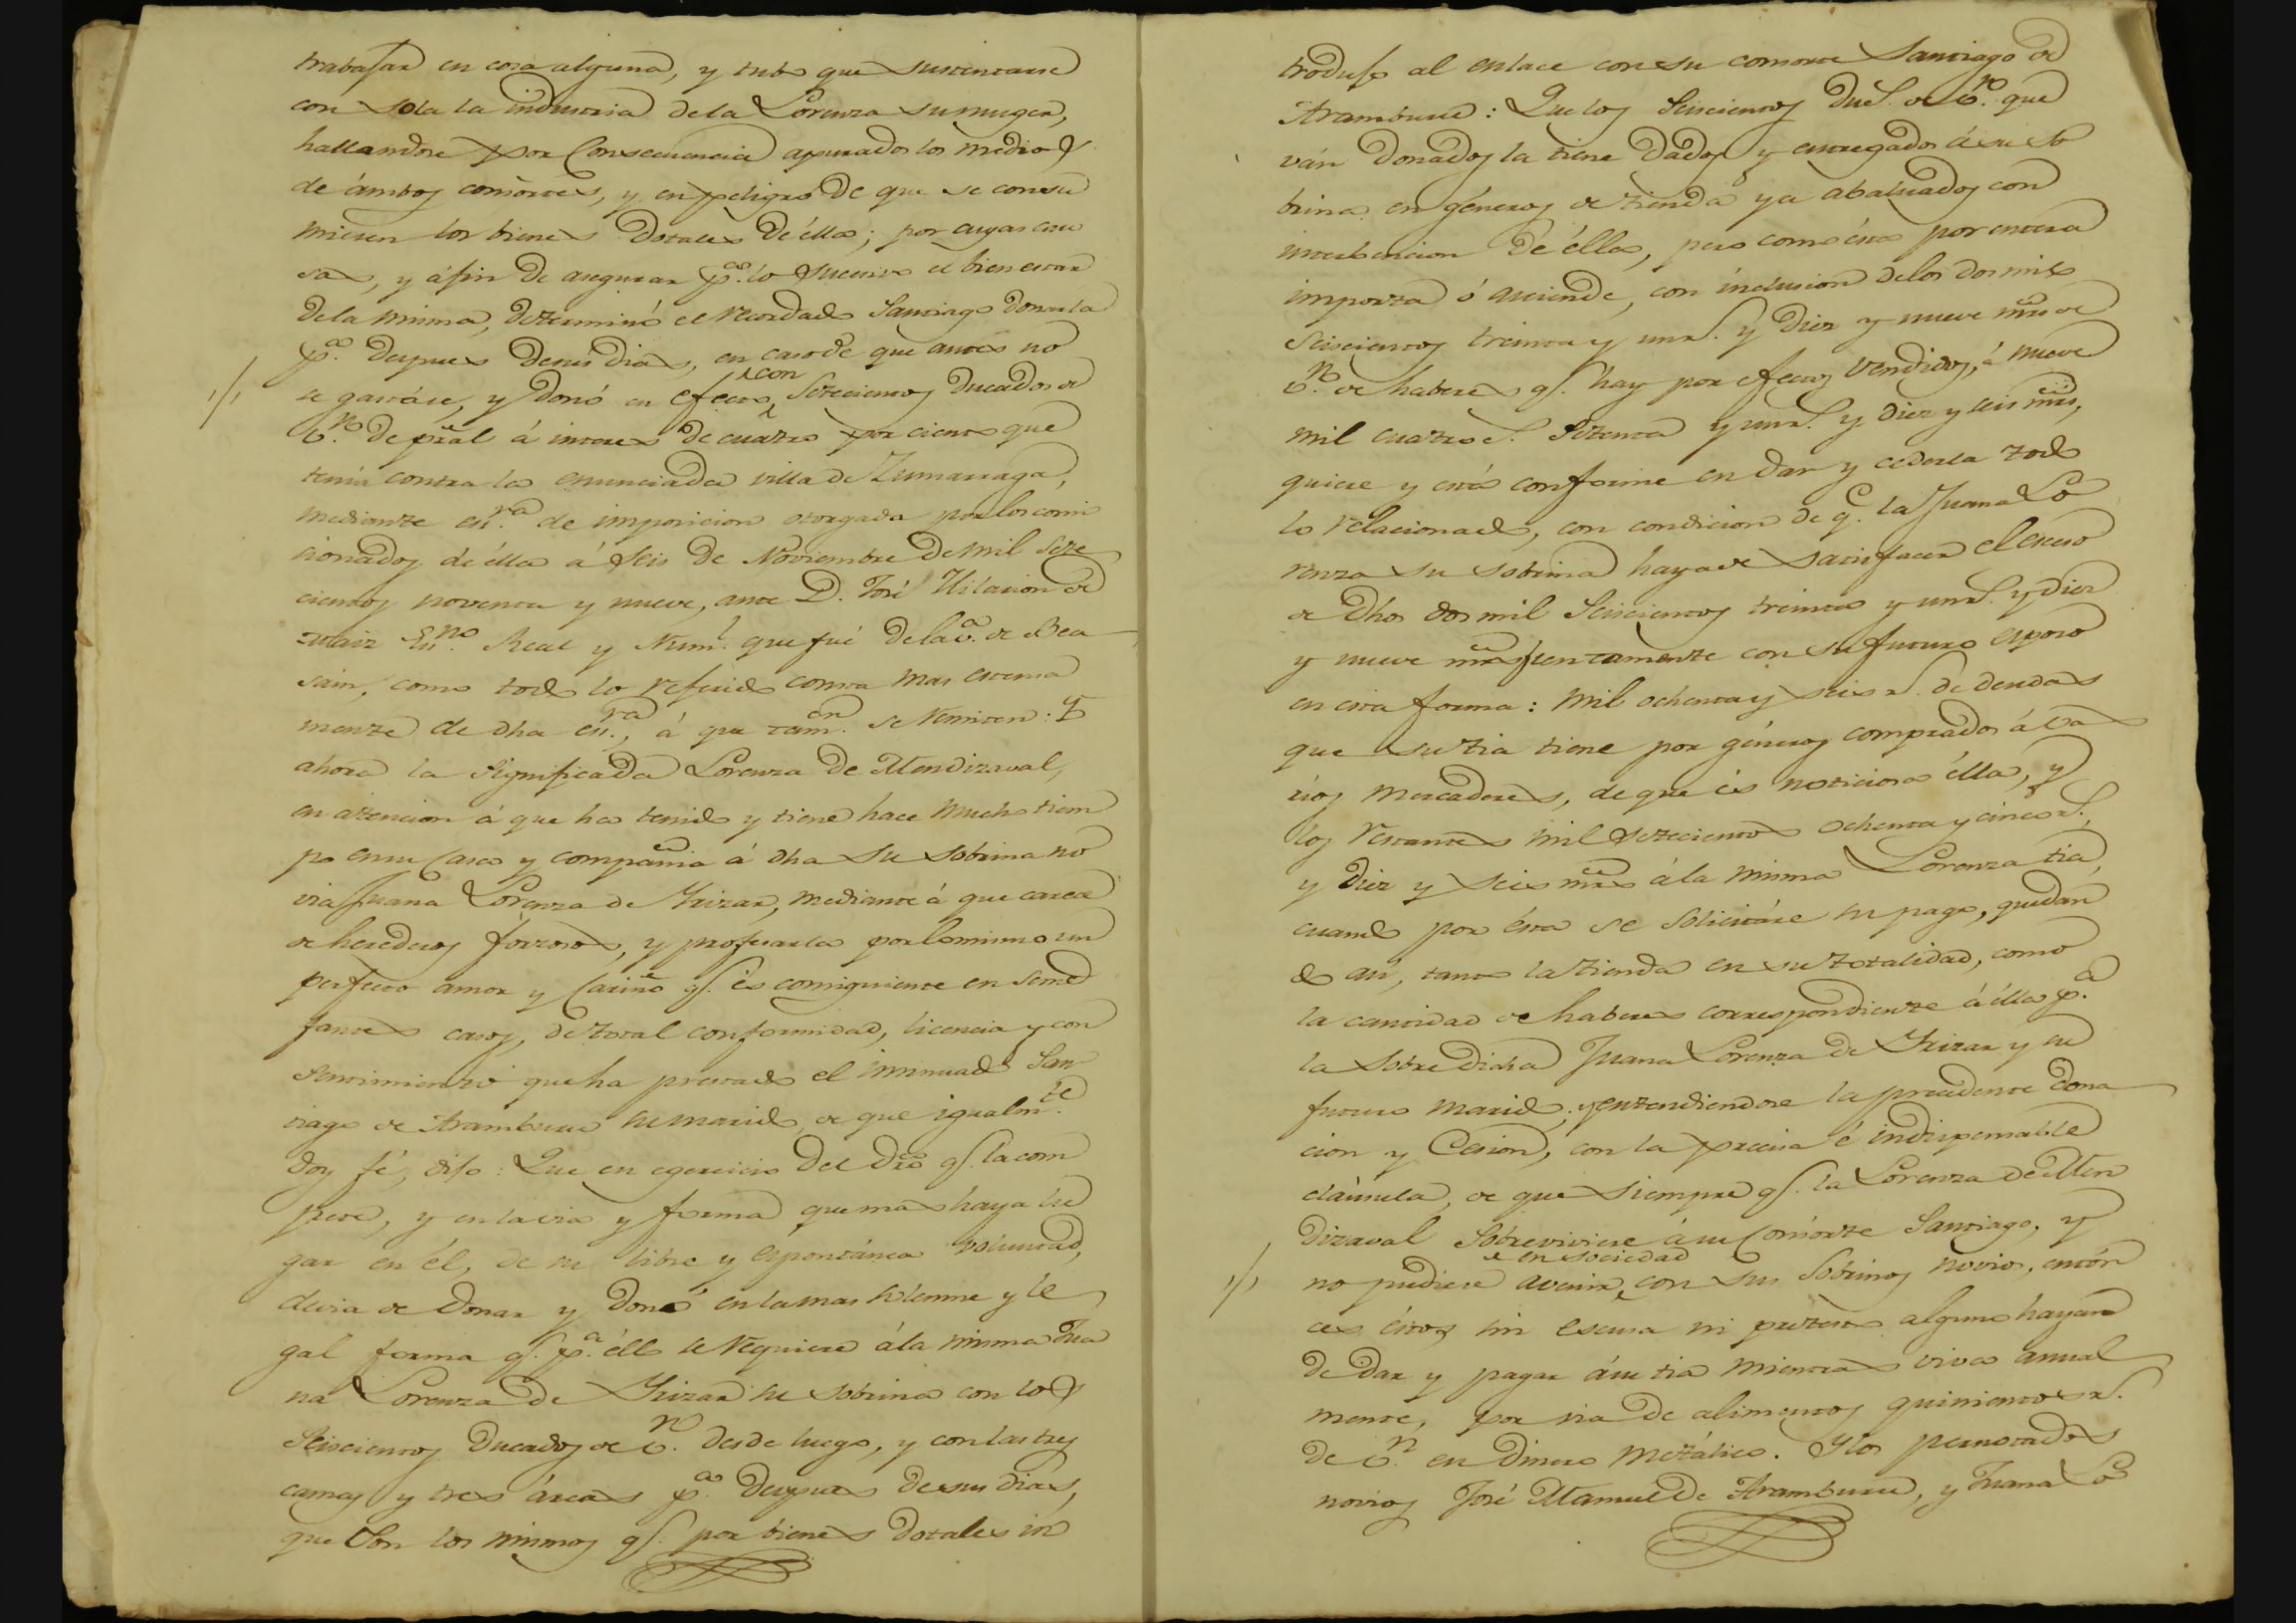 trabajar en cosa alguna, y tubo que sustentarse
con sola la industria dela Lorenza su muger,
hallandose por consecuencia apurados los medios
de ámbos consortes, y en peligro de que se consu
miesen los bienes dotales de élla; por cuyas cau
sas, y áfin de asegurar p.ª lo sucesivo el bien estar
dela misma, determinó el recordado Santiago donarla
p.ª despues desus dias, en caso de que antes no
se gastáse, y donó en efecto con Setecientos Ducados de
v.n de pral á interes de cuatro por ciento que
tenia contra la enunciada villa de Zumarraga,
mediante esc.ra de imposicion otorgada por los comi
sionados de élla á seis de Noviembre de mil sete
cientos noventa y nueve, ante D. José Hilarion de
Es.no Real y Num.l que fué dela v.ª de Bea
sain, como todo lo referido consta mas estensa
mente de dha es.ra, á que tam.en se remiten: Y
ahora la significada Lorenza de Mendizaval,
en atencion á que ha tenido y tiene hace mucho tiem
po en su casa y compañia á dha su sobrina no
via Juana Lorenza de Yrizar, mediante á que carece
de herederos forzosos, y profesarla por lo mismo un
perfecto amor y cariño q.e es consiguiente en seme
jantes casos, de total conformidad, licencia y con
sentimiento que ha prestado el insinuado San
tiago de Aramburu su marido, de que igualm.te
doy fé, dijo: Que en egercicio del dro q.e la com
pete, y en la via y forma que mas haya lu
gar en él, de su libre y espontánea voluntad,
devia de donar y donó en la mas solemne y le
gal forma q.e p.ª éllo se requiere á la misma Jua
na Lorenza de Yrizar su sobrina con los
Seiscientos Ducados de v.n desde luego, y con las tres
camas y tres árcas p.ª despues de sus dias,
que son los mismos q.e por bienes dotales in
trodujo al enlace con su consorte Santiago de
Aramburu: Que los Seiscientos Duc.s de v.n que
ván donados la tiene dados y entregados á su so
brina en géneros de tienda ya abaluados con
interbencion de élla, pero como ésta por entera
importa ó asciende, con inclusion delos dos mil
Seiscientos treinta y un r.s y diez y nueve mrs de
v.n de haberes q.e hay por efectos vendidos, á nueve
mil cuatro c.s setenta y un r.s y diez y seis mrs,
quiere y está conforme en dar y cederla todo
lo relacionado, con condicion de q.e la Juana Lo
renza su sobrina haya de satisfacer el exceso
de dhos dos mil Seiscientos treinta y un r.s y diez
y nueve mrs juntamente con su futuro esposo
en esta forma: mil ochenta y seis r.s de deudas
que su tia tiene por géneros comprados á va
rios mercaderes, de que és noticiosa élla, y
los restantes mil setecientos ochenta y cinco r.s,
y diez y seis mrs á la misma Lorenza tia,
cuando por ésta se solicitáre su pago, quedan
do asi, tanto la tienda en su totalidad, como
la cantidad de haberes correspondiente á élla p.ª
la sobredicha Juana Lorenza de Yrizar y su
futuro marido; y entendiendose la precedente dona
cion y Cesion, con la precisa é indispensable
cláusula, de que siempre q.e la Lorenza de Men
dizaval sobreviviere á su consorte Santiago, y
no pudiere avenir en sociedad con sus sobrinos novios, entón
ces éstos sin escusa ni pretesto alguno hayan
de dar y pagar á su tia mientras viva anual
mente, por via de alimentos quinientos r.s
de v.n en dinero metálico. Y los pernotados
novios José Manuel de Aramburu, y Juana Lo